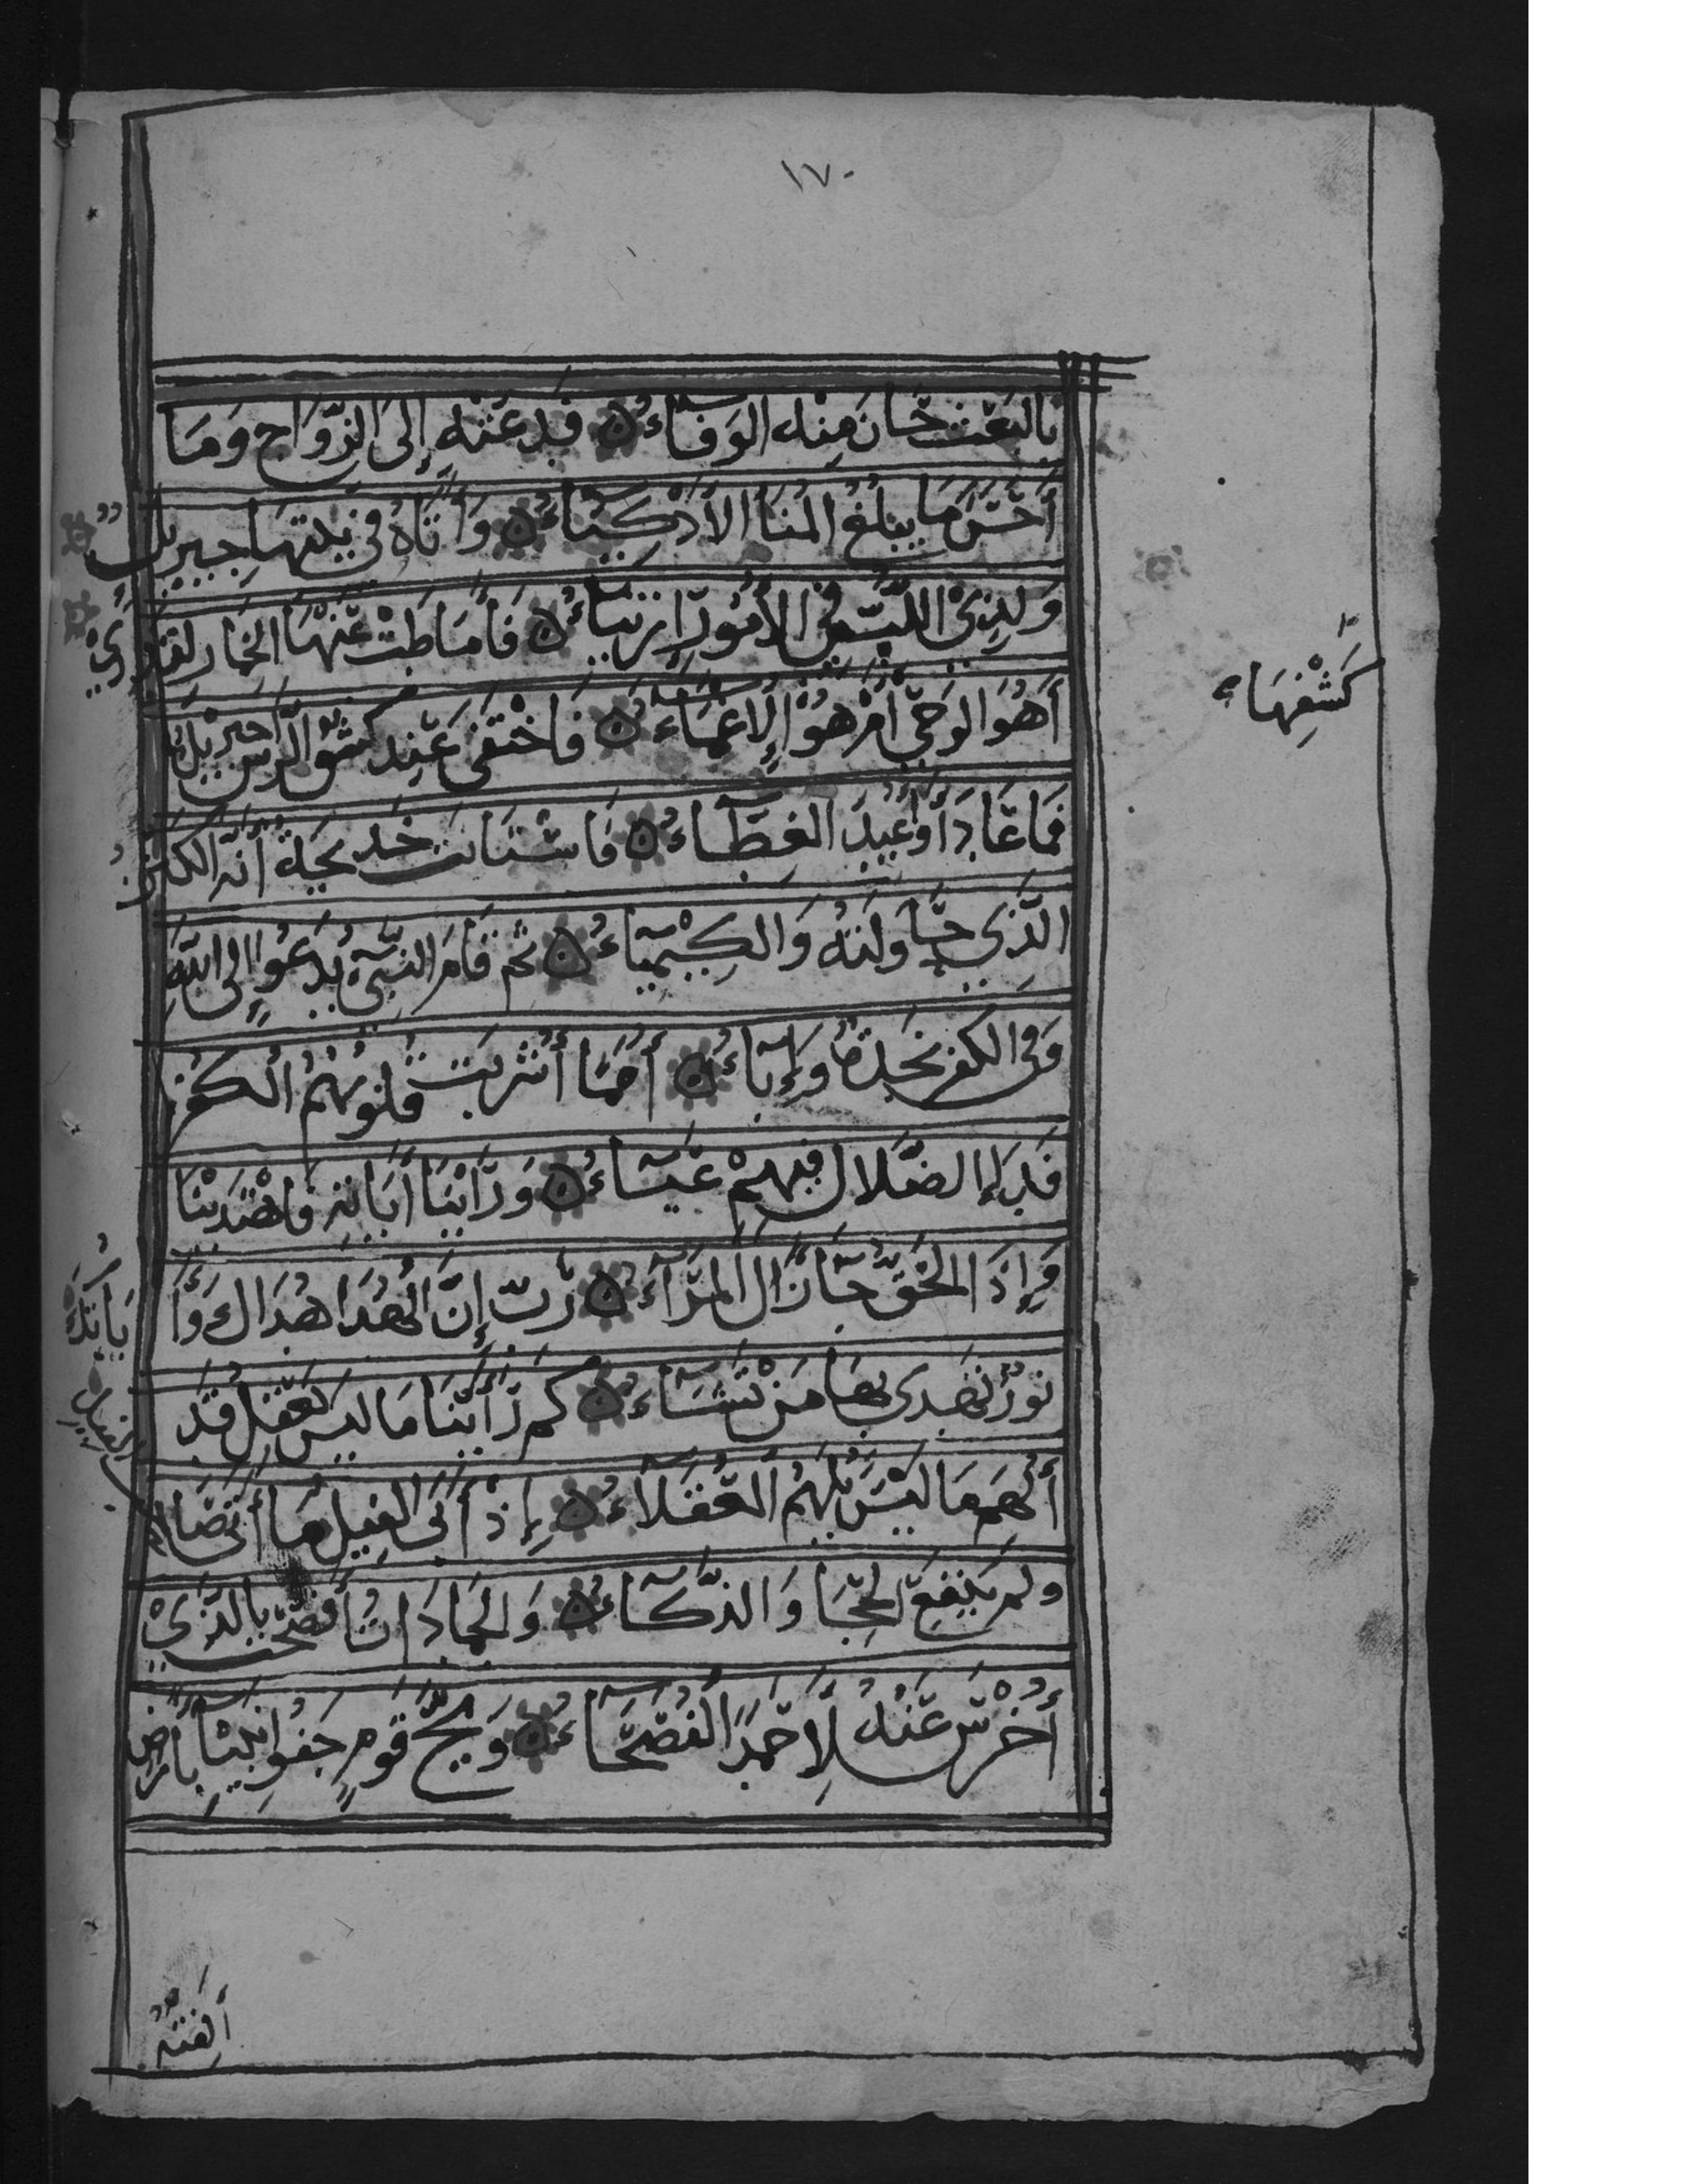 ١٧٠
بِالبَعْثِ حَانَ مِنْه الوَفَآءُ ۞ فَدَعَتْه إِلَى الزَّوَاجِ وَمَا
أَحْسَنَ مَا يَبْلُغُ المُنَا الأَذْكِيَآءُ ۞ وَأَتَاهُ فِي بَيْتِهَا جِبْرِيلُ
وَلِذِي اللُّبِّ فِي الأُمُورِ ارْتِيَآءُ ۞ فَأَمَاطَتْ عَنْهَا الخِمَار لِتَدْرِيْ
كَشْفِهَا
أَهُوَ الوَحْيُ أَمْ هُوَ الإِغْمَآءُ ۞ فَاخْتَفَى عِنْدَ كشف الرأس جِبْرِيلُ
فَمَا عَادَ أَوْ أُعِيدَ الغِطَآءُ ۞ فَاسْتَبَانَت خَدِيجَة أَنَّه الكَنْزُ
الَّذِي حَاوَلَتْهُ وَالكِيْمِيَآءُ ۞ ثُم قَامَ النَّبِيُّ يَدْعُوا إِلَى اللَّهِ
وَفِي الكُفْرِ نَجْدَةٌ وَإِبَآءُ ۞ أُمَمًا أُشْرِبَت قُلُوبُهُمُ الكُفْرَ
فَدَاءُ الضَّلَالِ فِيهِمْ عَيَآءُ ۞ وَرَأَيْنَا أَيَاتِه فَاهْتَدَيْنَا
وَإِذَا الحَقُّ جَآءَ زَالَ المِرَآءُ ۞ رَبِّ إِنَّ الهُدَا هُدَاكَ وَأَ
يَاتُكَ
نُورٌ تَهْدِي بِهَا مَنْ تَشَآءُ ۞ كم رَأَيْنَا مَا لَيْسَ يَعْقِلُ قَدْ
أُلْهِمَ مَا لَيْسَ يُلْهَمُ العُقَلَآءُ ۞ إِذْ أَبَى الفِيلُ مَا أَتَى صَا
الفيل
وَلَم يَنْفَعِ الحِجَا وَالذَّكَآءُ ۞ وَالجَمَادَاتُ أَفْصَحَت بِالَّذِيْ
أُخْرِسَ عَنْهُ لِأَحْمَدَ الفُصَحَآءُ ۞ وَيْحَ قَوْمٍ جَفَوا نَبِيًّا بِأَرْضٍ
أَلِفَتْه